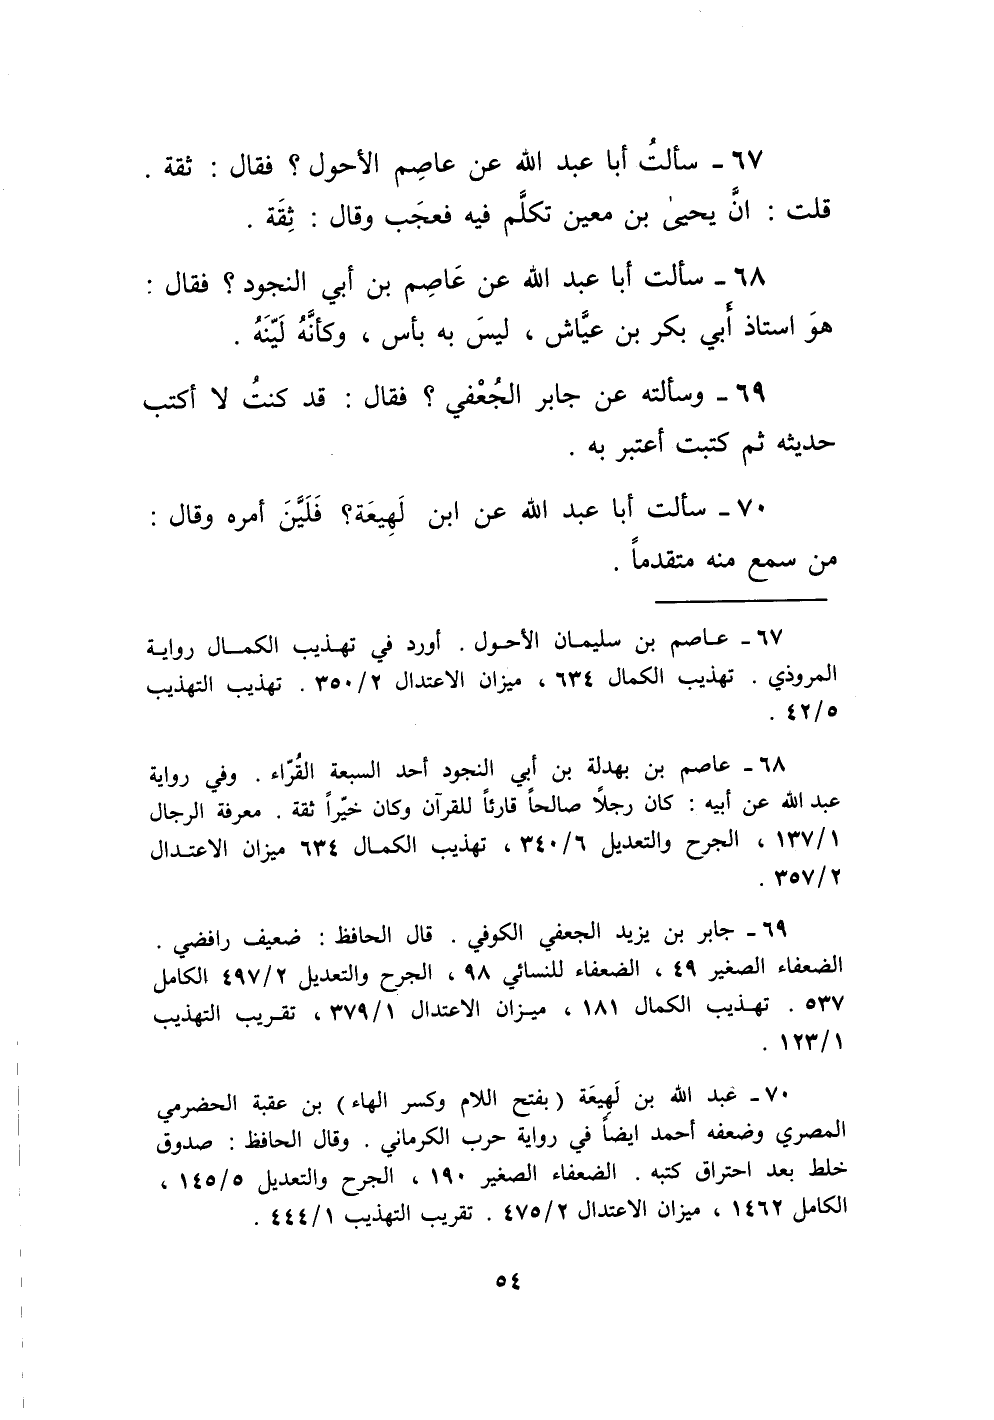 ٦٧ ـ سألتُ أبا عبد الله عن عاصِم الأحول ؟ فقال : ثقة .
قلت : انَّ يحيىٰ بن معين تكلَّم فيه فعجَب وقال : ثِقَة .
٦٨ ـ سألت أبا عبد الله عن عَاصِم بن أبي النجود ؟ فقال :
هوَ استاذ أَبي بكر بن عيَّاش ، ليسَ به بأس ، وكأنَّهُ لَيّنَهُ .
٦٩ ـ وسألته عن جابر الجُعْفي ؟ فقال : قد كنتُ لا أكتب
حديثه ثم كتبت أعتبر به .
٧٠ ـ سألت أبا عبد الله عن ابن لَهِيعَة؟ فَلَيَّنَ أمره وقال :
من سمع منه متقدماً .
٦٧ ـ عاصم بن سليمان الأحول . أورد في تهذيب الكمال رواية
المروذي . تهذيب الكمال ٦٣٤ ، ميزان الاعتدال ٣٥٠/٢ . تهذيب التهذيب
٤٢/٥ .
٦٨ ـ عاصم بن بهدلة بن أبي النجود أحد السبعة القُرّاء . وفي رواية
عبد الله عن أبيه : كان رجلًا صالحاً قارئاً للقرآن وكان خيّراً ثقة . معرفة الرجال
١٣٧/١ ، الجرح والتعديل ٣٤٠/٦ ، تهذيب الكمال ٦٣٤ ميزان الاعتدال
٣٥٧/٢ .
٦٩ ـ جابر بن يزيد الجعفي الكوفي . قال الحافظ : ضعيف رافضي .
الضعفاء الصغير ٤٩ ، الضعفاء للنسائي ٩٨ ، الجرح والتعديل ٤٩٧/٢ الكامل
٥٣٧ . تهذيب الكمال ١٨١ ، ميزان الاعتدال ٣٧٩/١ ، تقريب التهذيب
١٢٣/١ .
٧٠ ـ عبد الله بن لَهِيعَة (بفتح اللام وكسر الهاء) بن عقبة الحضرمي
المصري وضعفه أحمد ايضاً في رواية حرب الكرماني . وقال الحافظ : صدوق
خلط بعد احتراق كتبه . الضعفاء الصغير ١٩٠ ، الجرح والتعديل ١٤٥/٥ ،
الكامل ١٤٦٢ ، ميزان الاعتدال ٤٧٥/٢ . تقريب التهذيب ٤٤٤/١ .
٥٤